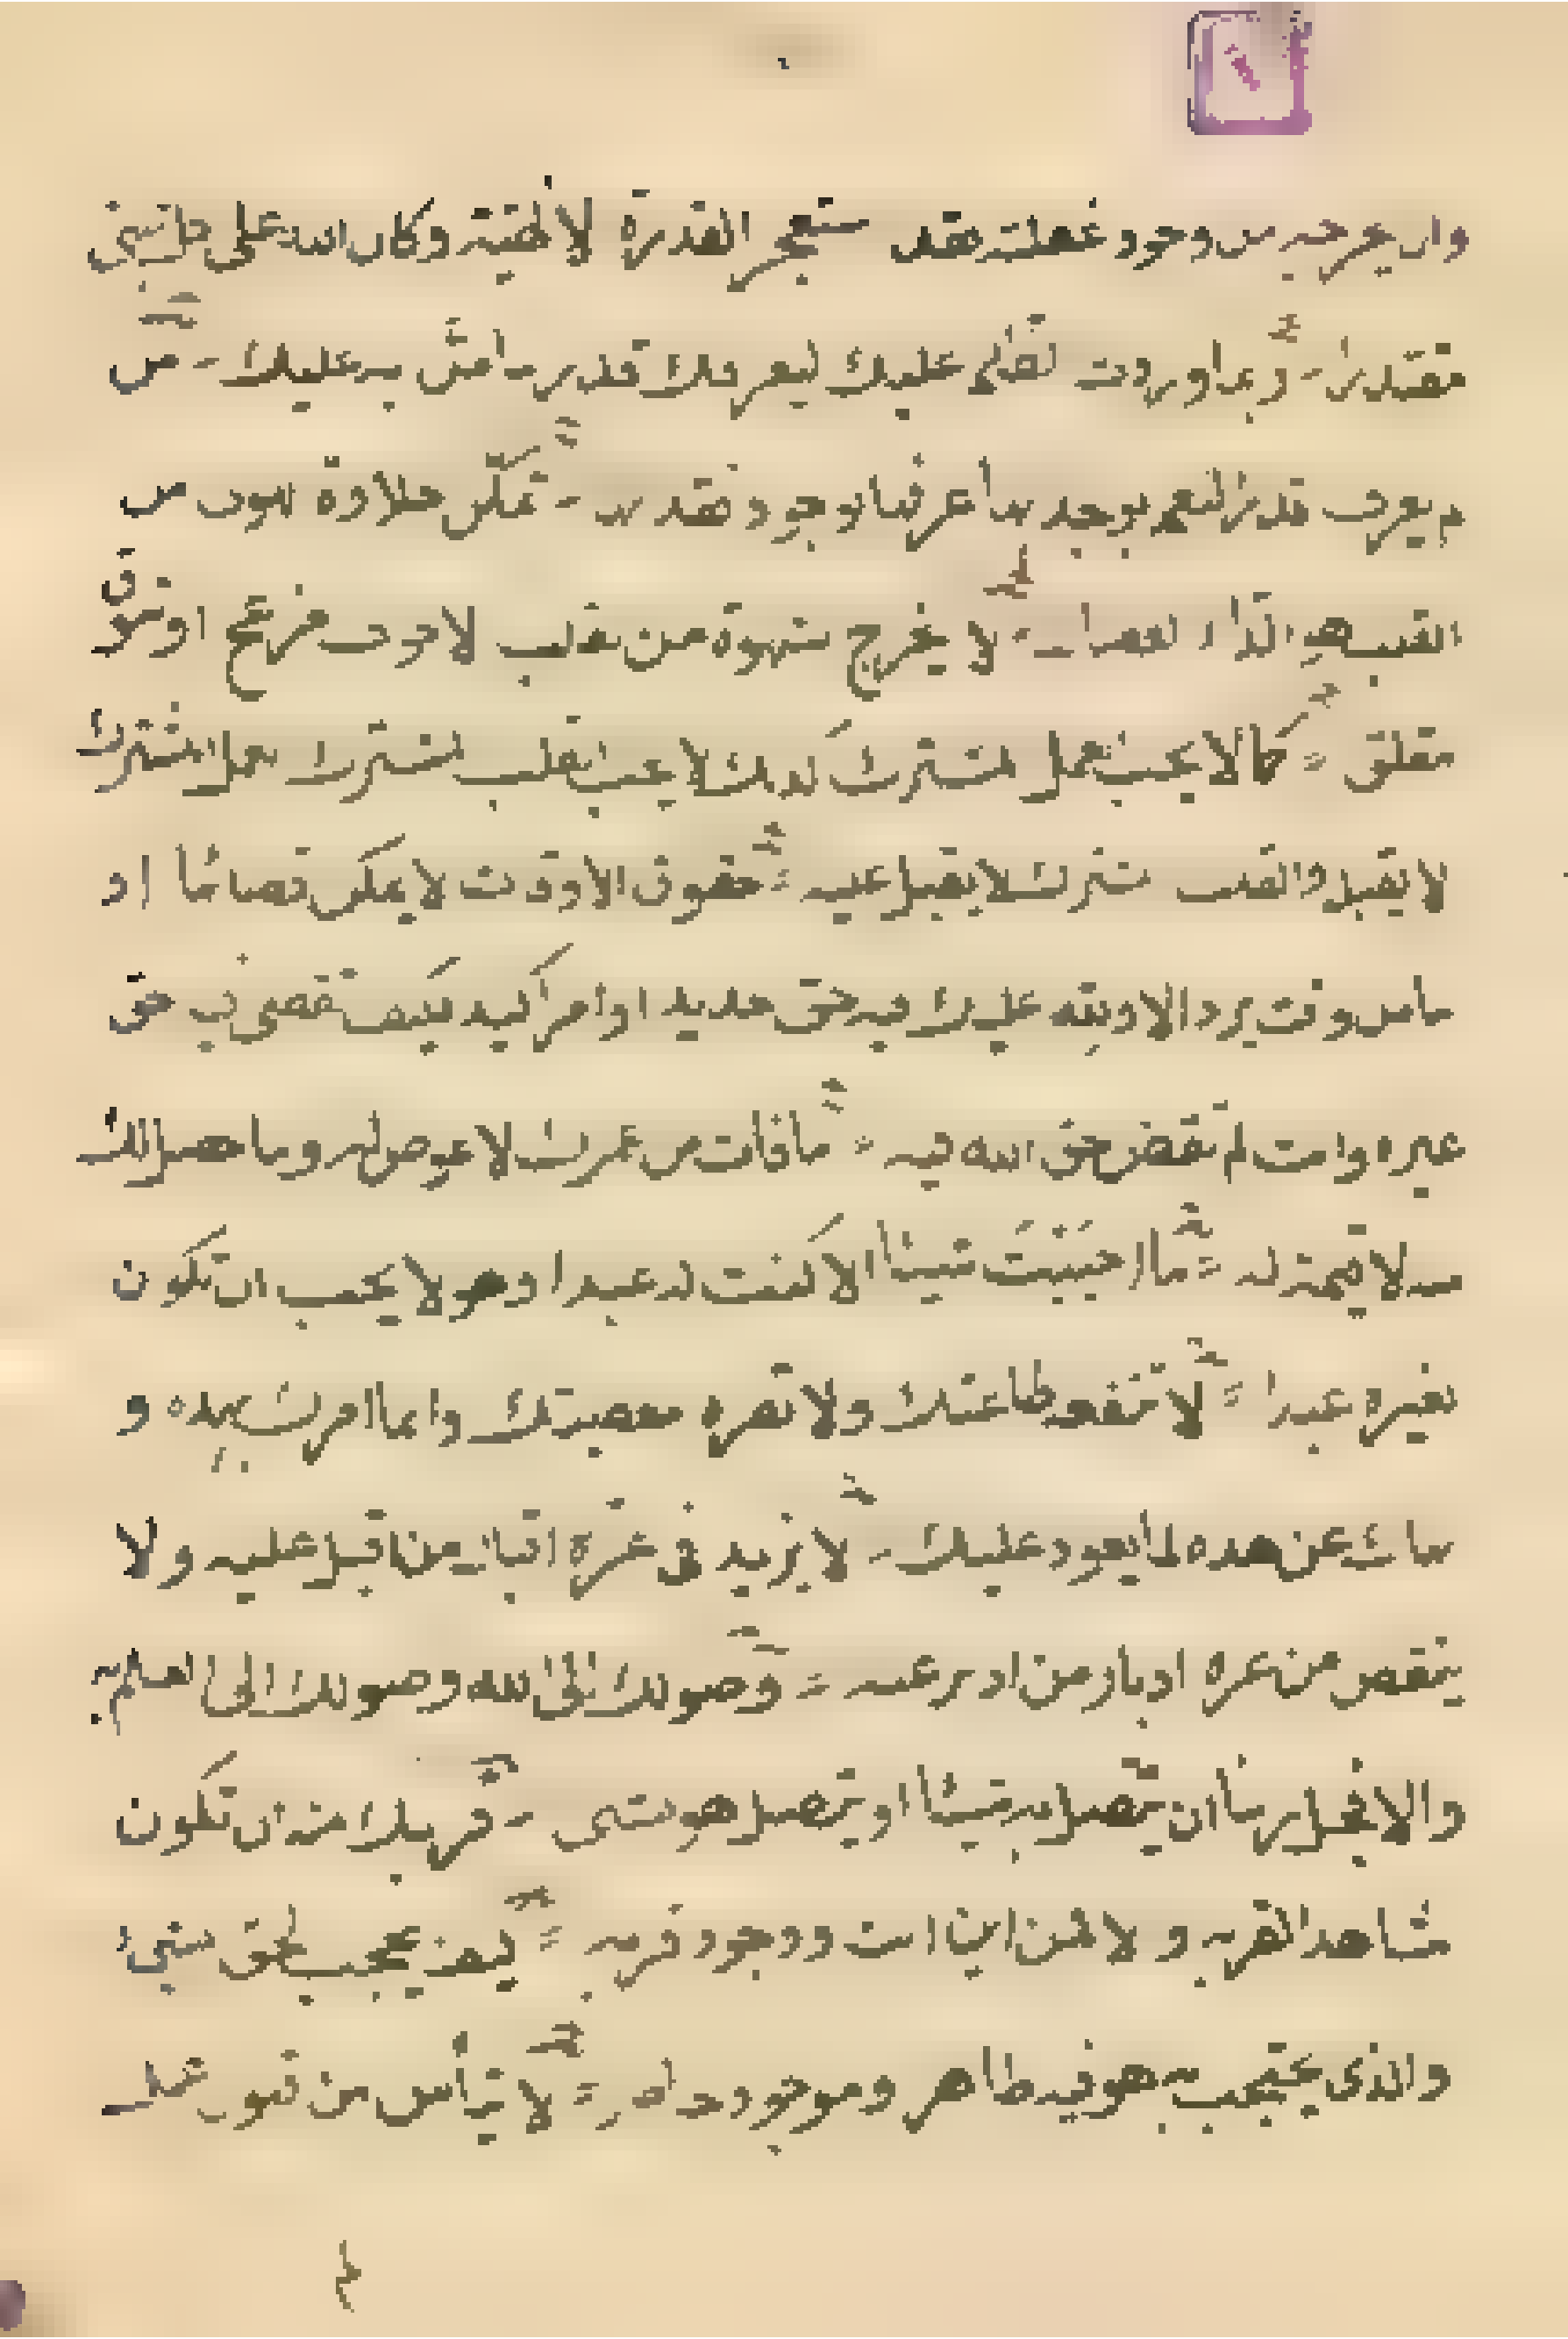 وان يخرجه من وجود غفلته فقد استعجز القدرة الالهية وكان الله على كل شيء
مقتدرا ربما وردت الظلم عليك ليعرفك قدر ما من به عليك من
لم يعرف قدر النعم بوجدانها عرفها بوجود فقدانها تمكن حلاوة الهوى من
القلب هو الداء العضال لا يخرج الشهوة من القلب الا خوف مزعج او شوق
مقلق كما لا يحب العمل المشترك كذلك لا يحب القلب المشترك العمل المشترك
لا يقبله والقلب المشترك لا يقبل عليه حقوق الاوقات لا يمكن قضاؤها اذ
ما من وقت يرد الا ولله عليك فيه حق جديد او امر اكيد فكيف تقضي فيه حق
غيره وانت لم تقض حق الله فيه ما فات من عمرك لا عوض له وما حصل لك
منه لا قيمة له ما احببت شيئا الا كنت له عبدا وهو لا يحب ان تكون
لغيره عبدا لا تنفعه طاعتك ولا تضره معصيتك وانما امرك بهذه و
نهاك عن هذه لما يعود عليك لا يزيد في عزه اقبال من اقبل عليه ولا
ينقص من عزه ادبار من ادبر عنه وصولك الى الله وصولك الى العلم به
والا فجل ربنا ان يتصل به شيئا او يتصل هو بشيء قربك منه ان تكون
شاهدا لقربه و لا فمن اين انت ووجود قربه كيف يحتجب الحق بشيء
والذي يحتجب به هو فيه ظاهر وموجود حاضر لا تيأس من قبول عمل